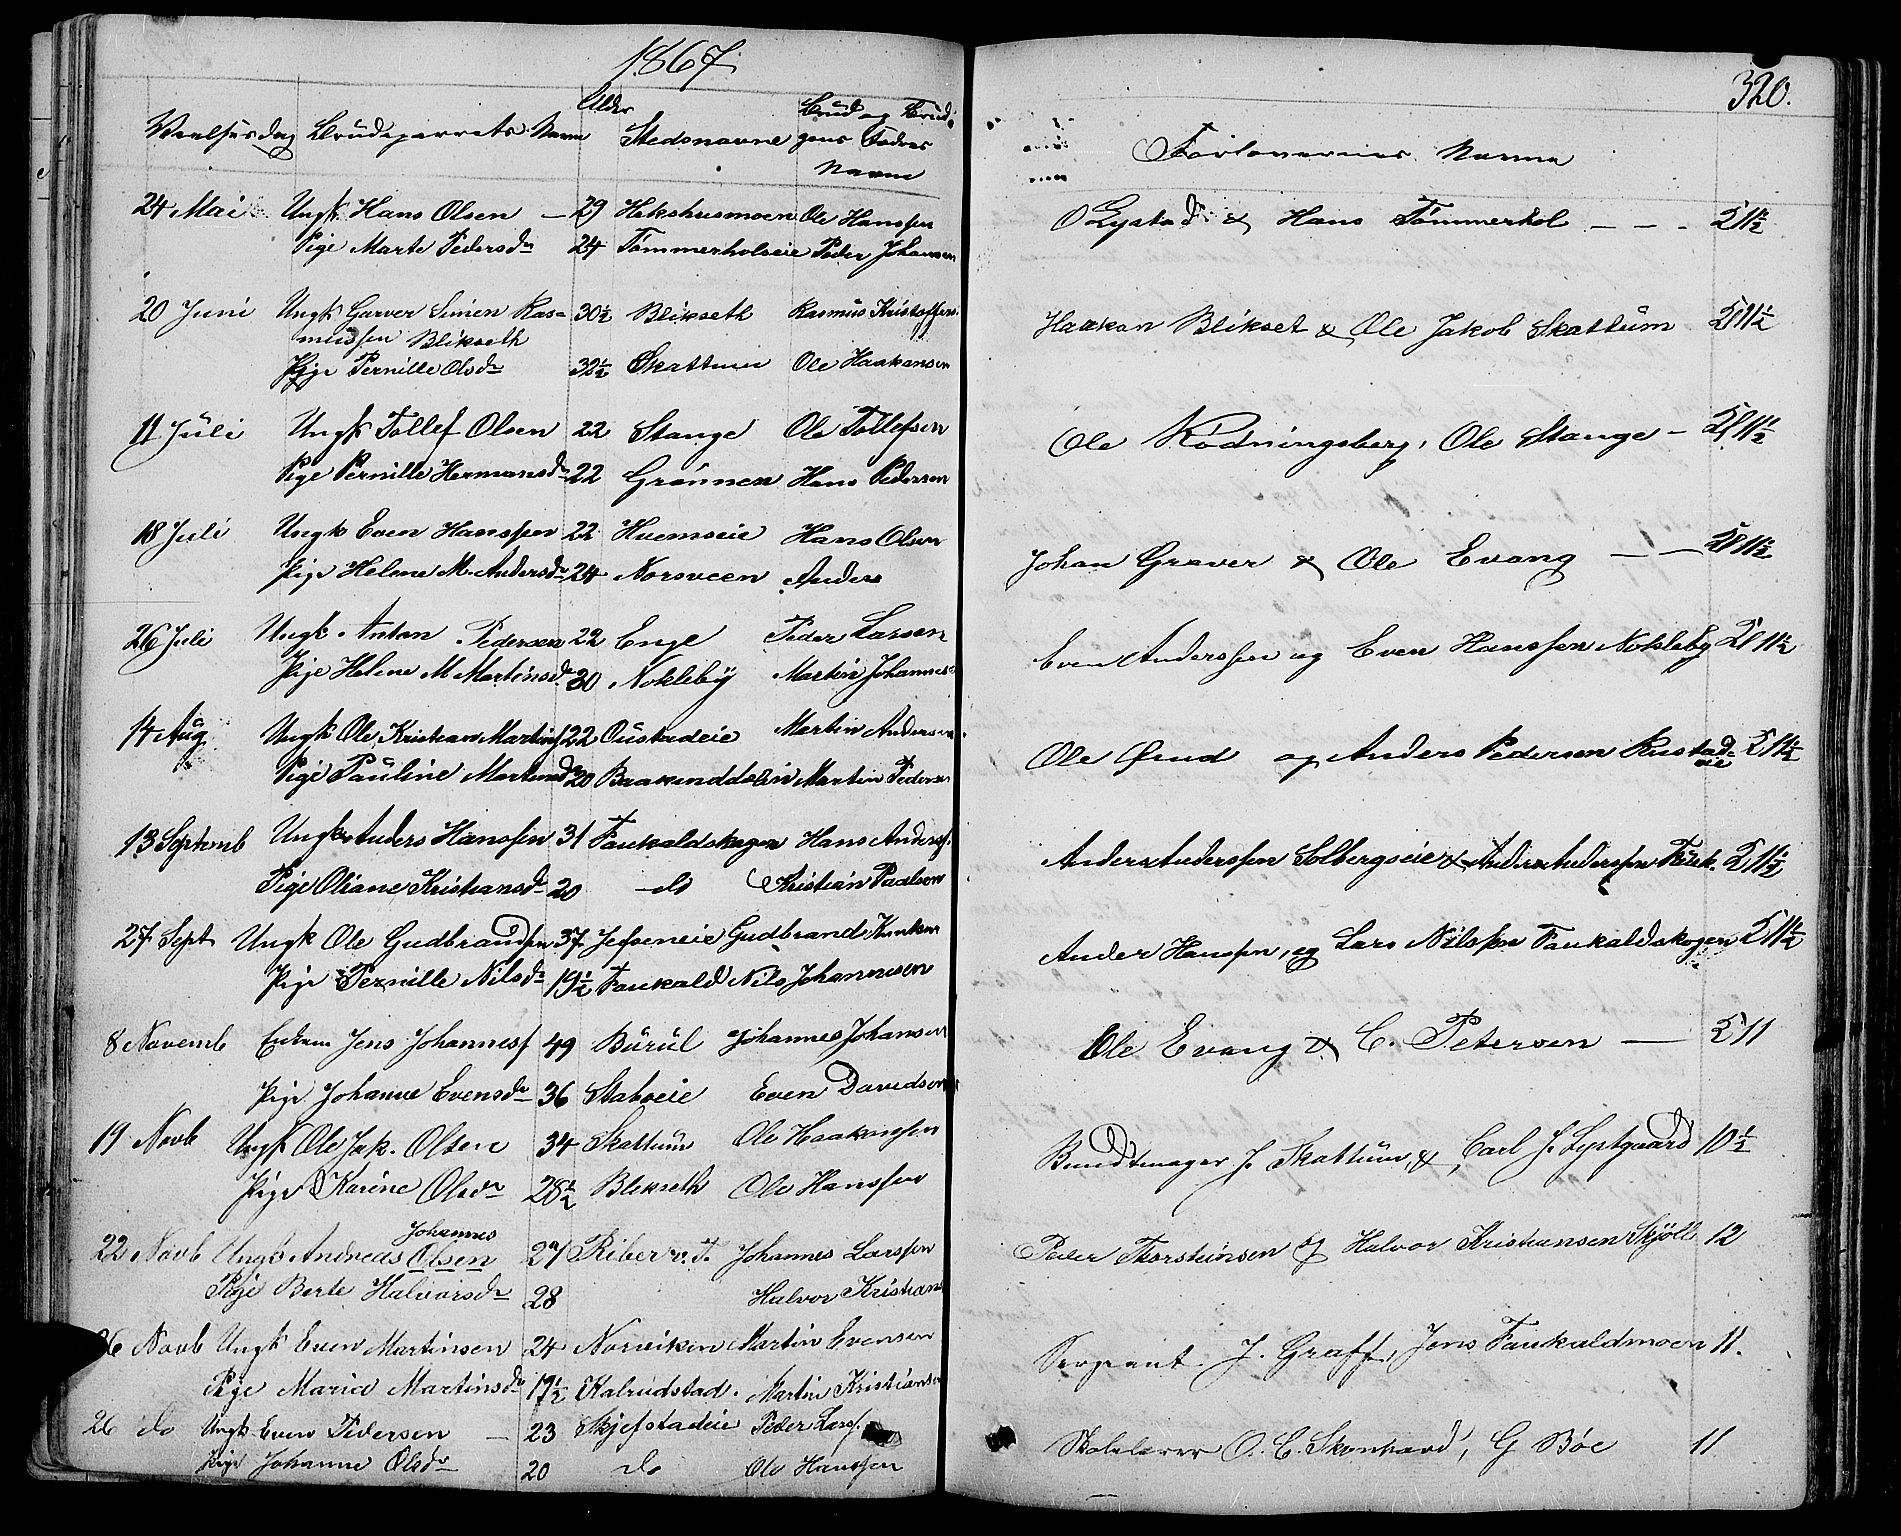 1867.
320.
Vielsesdag Brudeparrets Navn Alder Stedsnavne Brud og Brud-
gens Fadres
Navne
Forlovernes Navne
24 Mai Ungk Hans Olsen — 29 Hekshusmoen Ole Hanssen
O Lystad & Hans Tømmerhol — — — 5 11½
Pige Marte Pedersdr 24 Tømmerholseie Peder Johansen
20 Juni Ungk Garver Simen Ras- 30½ Blikseth Rasmus Kristoffers.
mussen Blikseth
Haakon Blikset & Ole Jakob Skattum 11½
Pige Pernille Olsdr 32½ Skattum Ole Haakensen
11 Juli Ungk Tollef Olsen 22 Stange Ole Tollefsen
Ole Rødningsberg, Ole Stange — 11½
Pige Pernille Hermansdr 22 Grønnen Hans Pedersen
18 Juli Ungk Even Hanssen 22 Huemseie Hans Olsen
Johan Graver & Ole Evang — — 11½
Pige Helene M. Andersdr 24 Norsveen Anders
26 Juli Ungk. Anton Pedersen 22 Enge Peder Larsen
Even Anderssen og Even Hanssen Nøkleby 11½
Pige Helene M Martinsd. 20 Nøkleby Martin Johannes
14 Aug Ungk Ole Kristian Martins 22 Oustadeie Martin Andersen
Ole Ørud og Anders Pedersen Rustad- 5 11½
eie
Pige Pauline Martinsdr 20 Martin Pedersen
13 Septemb Ungk Anders Hanssen 31 Faukaldskogen Hans Anderss.
Anders Anderssen Solbergseie & Anders Anderssen 5 11½
Pige Oliane Kristiansdr 20 do Kristian Paalsen
27 Sept Ungk Ole Gudbrandsen 37 Jefseneie Gudbrand Knutsen
Ander Hanssen, og Lars Nilssen Faukaldskogen 5 11½
Pige Pernille Nilsdr 19½ Faukald Nils Johannesen
8 Novemb Enkem Jens Johanness 49 Burul Johannes Johansen
Ole Evang & C. Petersen — 5 11
Pige Johanne Evensdr 36 Stabseie Even Davidsen
19 Novb Ungk Ole Jak. Olsen 34 Skattum Ole Haakonsen
Bundtmager J. Skattum, & Carl J. Lystgaard 10½
Pige Karine Olsdr 28½ Blikseth Ole Hanssen
Johannes
22 Novb Ungk Andreas Olsen 27 Riber v. T. Johannes Larssen
Peder Thorsteinsen & Halvor Kristiansen Skjøll 12
Pige Berte Halvorsdr 28 Halvor Kristians
26 Novb Ungk Even Martinsen 24 Norviken Martin Evensen
Sergeant J. Graff, Jens Faukaldmoen 11.
Pige Maria Martinsdr 19½ Kalrudstad. Martin Kristiansen
26 do Ungk Even Pedersen — 23 Skjefstadeie Peder Larss.
O. C. Skonhard, G Bøe 11
Pige Johanne Olsdr 20 do Ole Hanssen